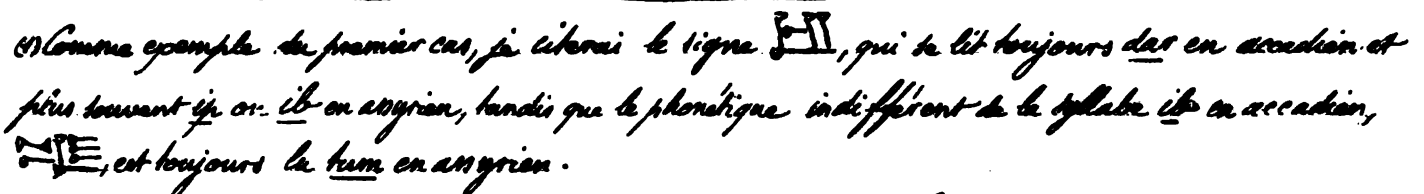 (1) Comme exemple du premier cas, je citerai le signe , qui se lit toujours dar en accadien et
plus souvent ip ou ib en assyrien, tandis que le phonétique indifférent de la syllabe ib en accadien,
, est toujours lu tum en assyrien.